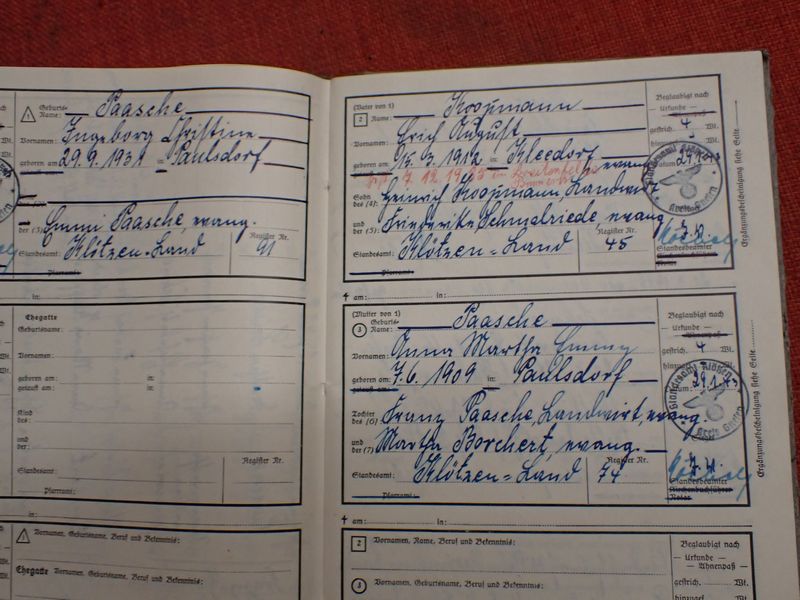 Geburts-
Name: Paasche
1
Vornamen: Ingeborg Christine
geboren am: 29.9.1931 in: Paulsdorf
der (3) Emmi Paasche, evang.
Standesamt: Klötzen-Land Register Nr. 91
Pfarramt:
in:
Ehegatte
Geburtsname:
Vornamen:
geboren am: in:
getauft am: in:
Kind
des:
und
der:
Standesamt: Register Nr.
Pfarramt:
in:
1 Vornamen, Geburtsname, Beruf und Bekenntnis:
Ehegatte Vornamen, Geburtsname, Beruf und Bekenntnis:
(Vater von 1)
2 Name: Koopmann
Vornamen: Erich August
geboren am: 15.3.1912 in: Kleedorf
7.12.1965 in
evang.
Sohn
des (4): Heinrich Koopmann, Landwirt
und
der (5): Friederike Schmalriede evang.
Standesamt: Klötzen-Land Register Nr. 45
Pfarramt:
Beglaubigt nach
Urkunde
gestrich. 4 Wt.
Wt.
Datum: 29.1.
Standesbeamter
Kirchenbuchführer
Notar
Ergänzungsbescheinigung siehe Seite
am: in:
(Mutter von 1)
Geburts-
3 Name: Paasche
Vornamen: Anna Martha Emmy
geboren am: 7.6.1909 in: Paulsdorf
getauft am:
Tochter
des (6) Franz Paasche, Landwirt, evang.
und
der (7) Martha Borchert, evang.
Standesamt: Klötzen-Land Register Nr. 74
Pfarramt:
Beglaubigt nach
Urkunde Ahnenpaß
gestrich. 4 Wt.
hinzugef.
Standesbeamter
Kirchenbuchführer
Notar
Ergänzungsbescheinigung siehe Seite
am: in:
2 Vornamen, Name, Beruf und Bekenntnis:
3 Vornamen, Geburtsname, Beruf und Bekenntnis:
Beglaubigt nach
— Urkunde —
— Ahnenpaß —
gestrich. Wt.
hinzugef. Wt.